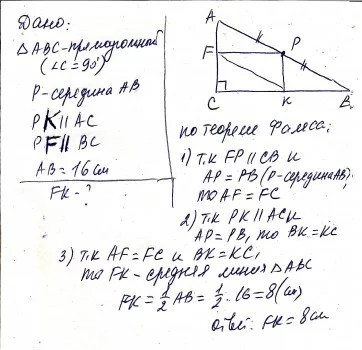 Дано:
△ABC - прямоугольный
(∠C = 90°)
P - середина AB
PK ∥ AC
PF ∥ BC
AB = 16 см
FK - ?
A
F
P
C
K
B
по теореме Фалеса:
1) т.к FP ∥ CB и
AP = PB (P - середина AB),
то AF = FC
2) т.к PK ∥ AC и
AP = PB, то BK = KC
3) т.к AF = FC и BK = KC,
то FK - средняя линия △ABC
FK = 1/2 AB = 1/2 · 16 = 8 (см)
Ответ: FK = 8 см